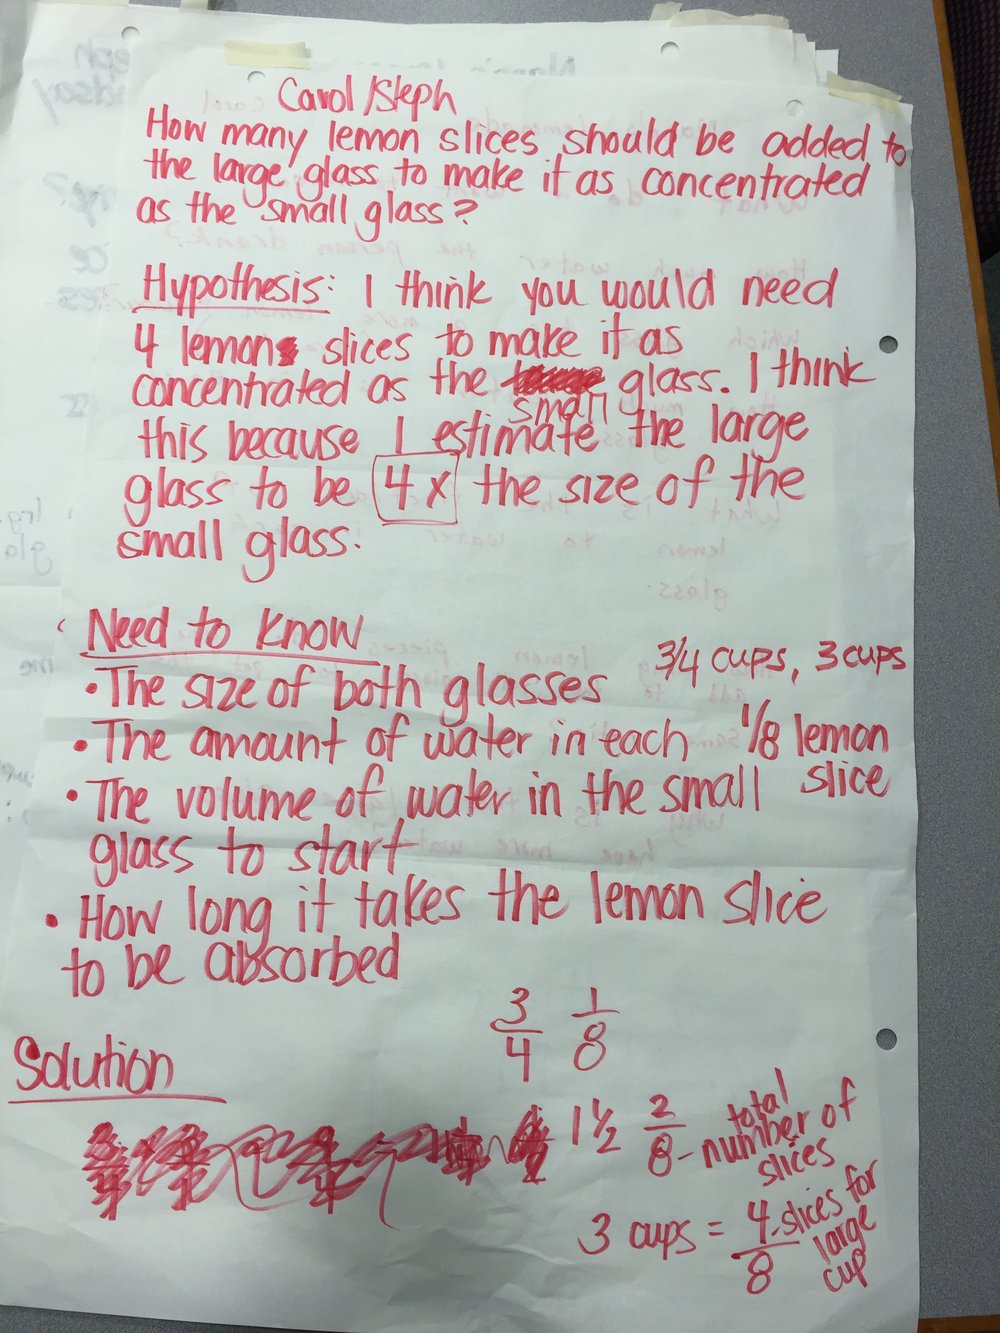 Carol/Steph
How many lemon slices should be added to
the large glass to make it as concentrated
as the small glass?
Hypothesis: I think you would need
4 lemons slices to make it as
concentrated as the glass. I think
small
this because I estimate the large
glass to be 4x the size of the
small glass.
Need to know
3/4 cups, 3 cups
• The size of both glasses
• The amount of water in each 1/8 lemon
slice
• The volume of water in the small
glass to start
• How long it takes the lemon slice
to be absorbed
3/4 1/8
Solution
1 1/2 2/8 - total
number of
slices
3 cups = 4/8 - slices for
large
cup